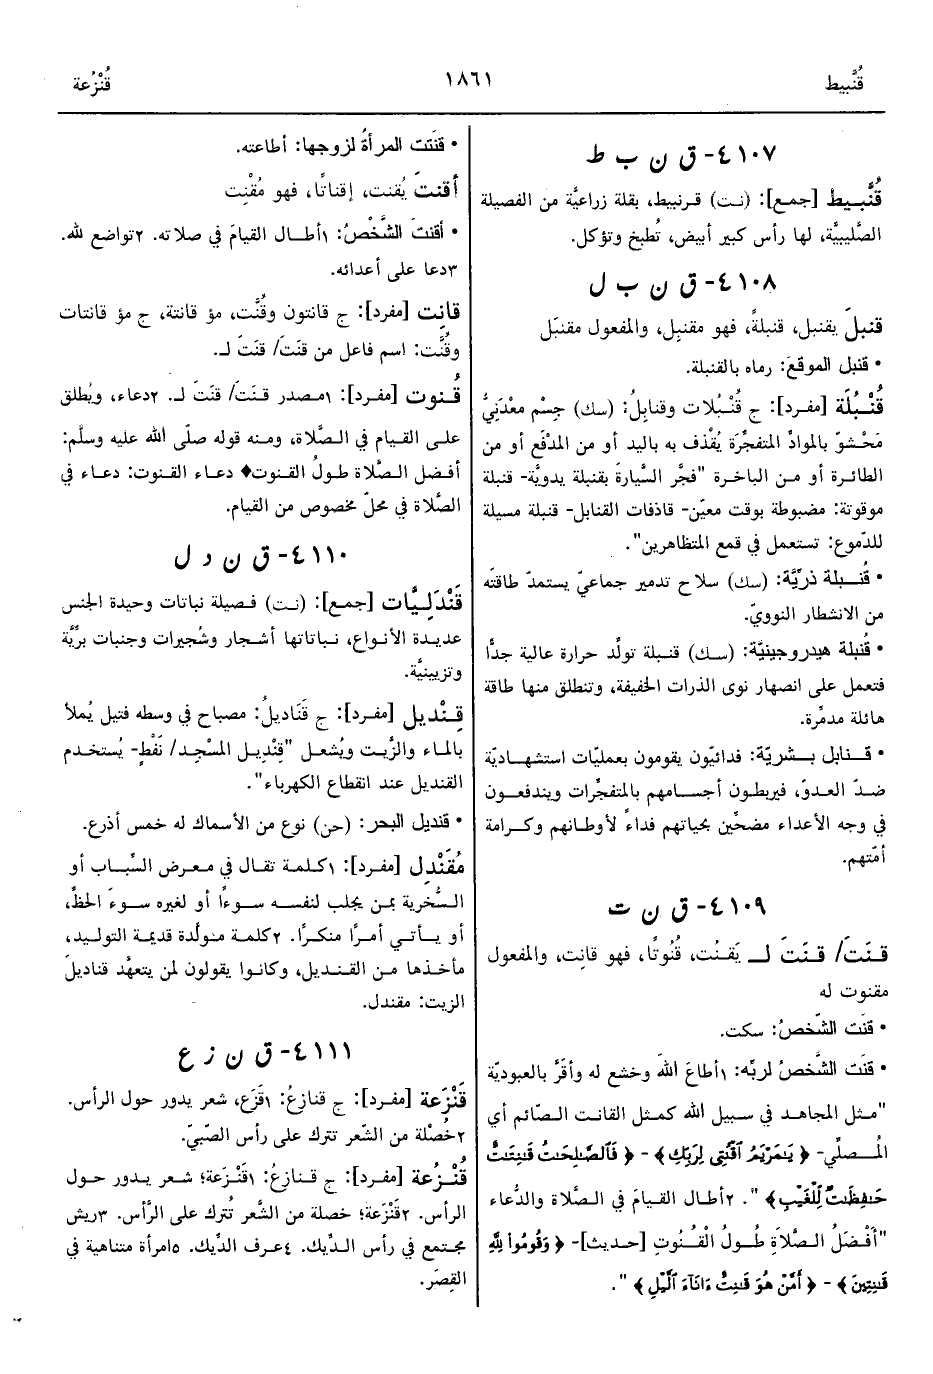 قُنَّبيط
١٨٦١
قُنْزُعة
٤١٠٧- ق ن ب ط
قُنَّبيط [جمع]: (نت) قرنبيط، بقلة زراعيَّة من الفصيلة
الصَّليبيَّة، لها رأس كبير أبيض، تُطبخ وتؤكل.
٤١٠٨- ق ن ب ل
قنبلَ يقنبل، قنبلةً، فهو مقنبِل، والمفعول مقنبَل
• قنبل الموقعَ: رماه بالقنبلة.
قُنْبُلَة [مفرد]: ج قُنْبُلات وقنابِلُ: (سك) جِسْم معْدَنِيٌّ
مَحْشوّ بالموادِّ المتفجِّرَة يُقْذف به باليد أو من المدْفَع أو من
الطائرة أو من الباخرة "فجَّر السَّيارةَ بقنبلة يدويَّة- قنبلة
موقوتة: مضبوطة بوقت معيّن- قاذفات القنابل- قنبلة مسيلة
للدّموع: تستعمل في قمع المتظاهرين".
• قُنبلة ذرِّيَّة: (سك) سلاح تدمير جماعيّ يستمدّ طاقتَه
من الانشطار النوويّ.
• قُنبلة هيدروجينيَّة: (سك) قنبلة تولِّد حرارة عالية جدًّا
فتعمل على انصهار نوى الذرات الخفيفة، وتنطلق منها طاقة
هائلة مدمِّرة.
• قنابل بشريّة: فدائيّون يقومون بعمليّات استشهاديّة
ضدّ العدوّ، فيربطون أجسامهم بالمتفجِّرات ويندفعون
في وجه الأعداء مضحِّين بحياتهم فداءً لأوطانهم وكرامة
أمّتهم.
٤١٠٩- ق ن ت
قنَتَ/ قنَتَ لـ يَقنُت، قُنُوتًا، فهو قانِت، والمفعول
مقنوت له
• قنَت الشّخصُ: سكت.
• قنَت الشَّخصُ لربِّه: ١أطاعَ اللهَ وخشع له وأقرَّ بالعبوديّة
"مثل المجاهد في سبيل الله كمثل القانت الصّائم أي
المُصلِّي- ﴿ يَـٰمَرْيَمُ ٱقْنُتِي لِرَبِّكِ ﴾ - ﴿ فَٱلصَّـٰلِحَـٰتُ قَـٰنِتَـٰتٌ
حَـٰفِظَـٰتٌ لِّلْغَيْبِ ﴾". ٢أطال القيامَ في الصَّلاة والدُّعاء
"أَفْضَلُ الصَّلاَةِ طُولُ الْقُنُوتِ [حديث]- ﴿ وَقُومُوا۟ لِلَّهِ
قَـٰنِتِينَ ﴾ - ﴿ أَمَّنْ هُوَ قَـٰنِتٌ ءَانَآءَ ٱلَّيْلِ ﴾".
• قنَتت المرأةُ لزوجها: أطاعته.
أقنتَ يُقنت، إقناتًا، فهو مُقْنِت
• أقنتَ الشَّخْصُ: ١أطال القيامَ في صلاته. ٢تواضع لله.
٣دعا على أعدائه.
قانِت [مفرد]: ج قانتون وقُنَّت، مؤ قانتة، ج مؤ قانتات
وقُنَّت: اسم فاعل من قنَتَ/ قنَتَ لـ.
قُنوت [مفرد]: ١مصدر قنَتَ/ قنَتَ لـ. ٢دعاء، ويُطلق
على القيام في الصَّلاة، ومنه قوله صلّى الله عليه وسلَّم:
أفضل الصَّلاة طولُ القنوت♦ دعاء القنوت: دعاء في
الصَّلاة في محلّ مخصوص من القيام.
٤١١٠- ق ن د ل
قَنْدَليَّات [جمع]: (نت) فصيلة نباتات وحيدة الجنس
عديدة الأنواع، نباتاتها أشجار وشُجيرات وجنبات برِّيَّة
وتزيينيَّة.
قِنْديل [مفرد]: ج قَنَاديلُ: مصباح في وسطه فتيل يُملأ
بالماء والزَّيت ويُشعل "قِنْديل المسْجِد/ نَفْطٍ- يُستخدم
القنديل عند انقطاع الكهرباء".
• قنديل البحر: (حن) نوع من الأسماك له خمس أذرع.
مُقَنْدِل [مفرد]: ١كلمة تقال في معرض السِّباب أو
السُّخرية بمن يجلب لنفسه سوءًا أو لغيره سوءَ الحظِّ،
أو يأتي أمرًا منكرًا. ٢كلمة مولَّدة قديمة التوليد،
مأخذها من القنديل، وكانوا يقولون لمن يتعهَّد قناديلَ
الزيت: مقندل.
٤١١١- ق ن ز ع
قَنْزَعَة [مفرد]: ج قنازعُ: ١قَزَع، شعر يدور حول الرأس.
٢خُصْلة من الشَّعر تترك على رأس الصَّبيّ.
قُنْزُعة [مفرد]: ج قنازعُ: ١قَنْزَعة؛ شعر يدور حول
الرأس. ٢قَنْزَعة؛ خصلة من الشَّعر تُترك على الرَّأس. ٣ريش
مجتمع في رأس الدّيك. ٤عرف الدِّيك. ٥امرأة متناهية في
القِصَر.